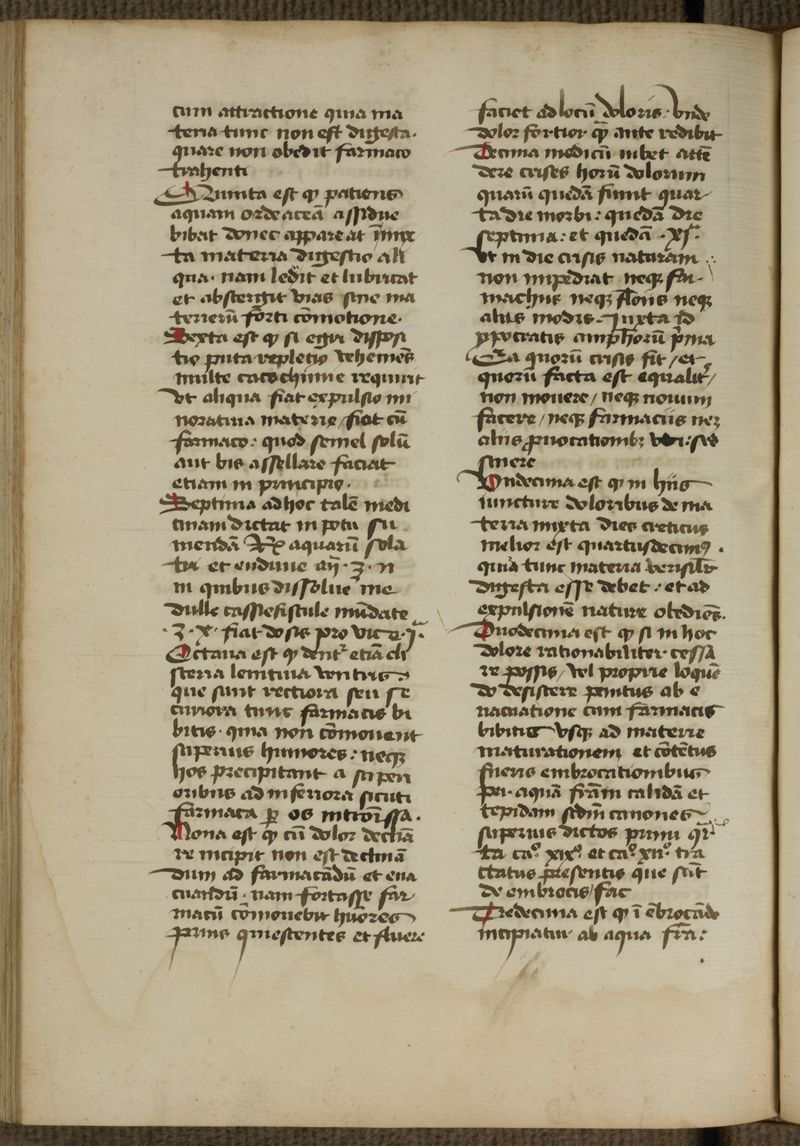 cum attractione quia ma
teria tunc non est digesta.
quare non obedit farmaco
trahenti
Quinta est qꝫ patiens
aquam ordeaceā assidue
bibat donec appareat in mix
ta materia digestio ali
qua. nam ledit et lubricat
et abstergit vias sine ma
terierū forti cōmotione.
Sexta est qꝫ si egri disposi
tio puta repletio vehemēs
multe cacochimie requirit
vt aliqua fiat expulsio mi
noratiua materie / fiat cū
farmaco: quod semel solū
aut bis assellare faciat
etiam in principio.
Septima ad hoc talē medi
cinam dictat in potu su
mendā Rx aquarū sola
tri et endiuie añ. ʒ. ii
in quibus dissolue me
dulle cassiefistule mūdate
. ʒ. x. fiat dosis pro vice. j.
Octaua est qꝫ dent᷑ etiā cli
steria lenitiua ventris
que sunt rectiora seu se
curiora tunc farmacis bi
bitis. quia non cōmouent
superius humores: neqꝫ
hos precipitant a superi
oribus ad inferiora sicuti
farmaca ꝑ os intromissa.
Nona est qꝫ cū dolor declīa
re incipit non est declinā
dum ad farmacādū et eua
cuandū. nam fortasse far
macū cōmouebit hūores
prius quiescentes et fluere
faciet ad locū doloris. vnde
dolor fortior qꝫ ante redibit
Decima medicū iubet attē
dere crises horū dolorum
quarū quedā fiunt quar
ta die morbi: quedā die
septima: et quedā .xj.
vt in die crisis naturam
non impediat neqꝫ far
maciis neqꝫ flōis neqꝫ
aliis modis. Juxta id
ypocratis amphorū prima
Ea quorū crisis fit / et
quorū facta est equalit᷑ /
non mouere / neqꝫ nouum
facere / neqꝫ farmaciis neqꝫ
aliis prouocationibꝫ vti: sed
sinere
Vndecima est qꝫ in hiis
iuncture doloribus de ma
teria mixta dies creticus
melior est quartusdecimꝰ.
quia tunc materia verisil'r
digesta esse debet: et ad
expulsionē nature obediēs.
Duodecima est qꝫ si in hoc
dolore rationabiliter cessā
re possis / vel proprie loquē
do desistere penitus ab e
uacuatione cum farmacis
bibitis vsqꝫ ad materie
maturationem et cōtētus
fueris embrocationibus
per aquā frām calidā et
tepidam scdm canones
superius dictos primi qr
ta caº xixº et caº xiiº tra
ctatus presentis que sūt
de embrocis / fac
Tredecima est qꝫ ī ēbrocādo
incipiatur ab aqua frā: